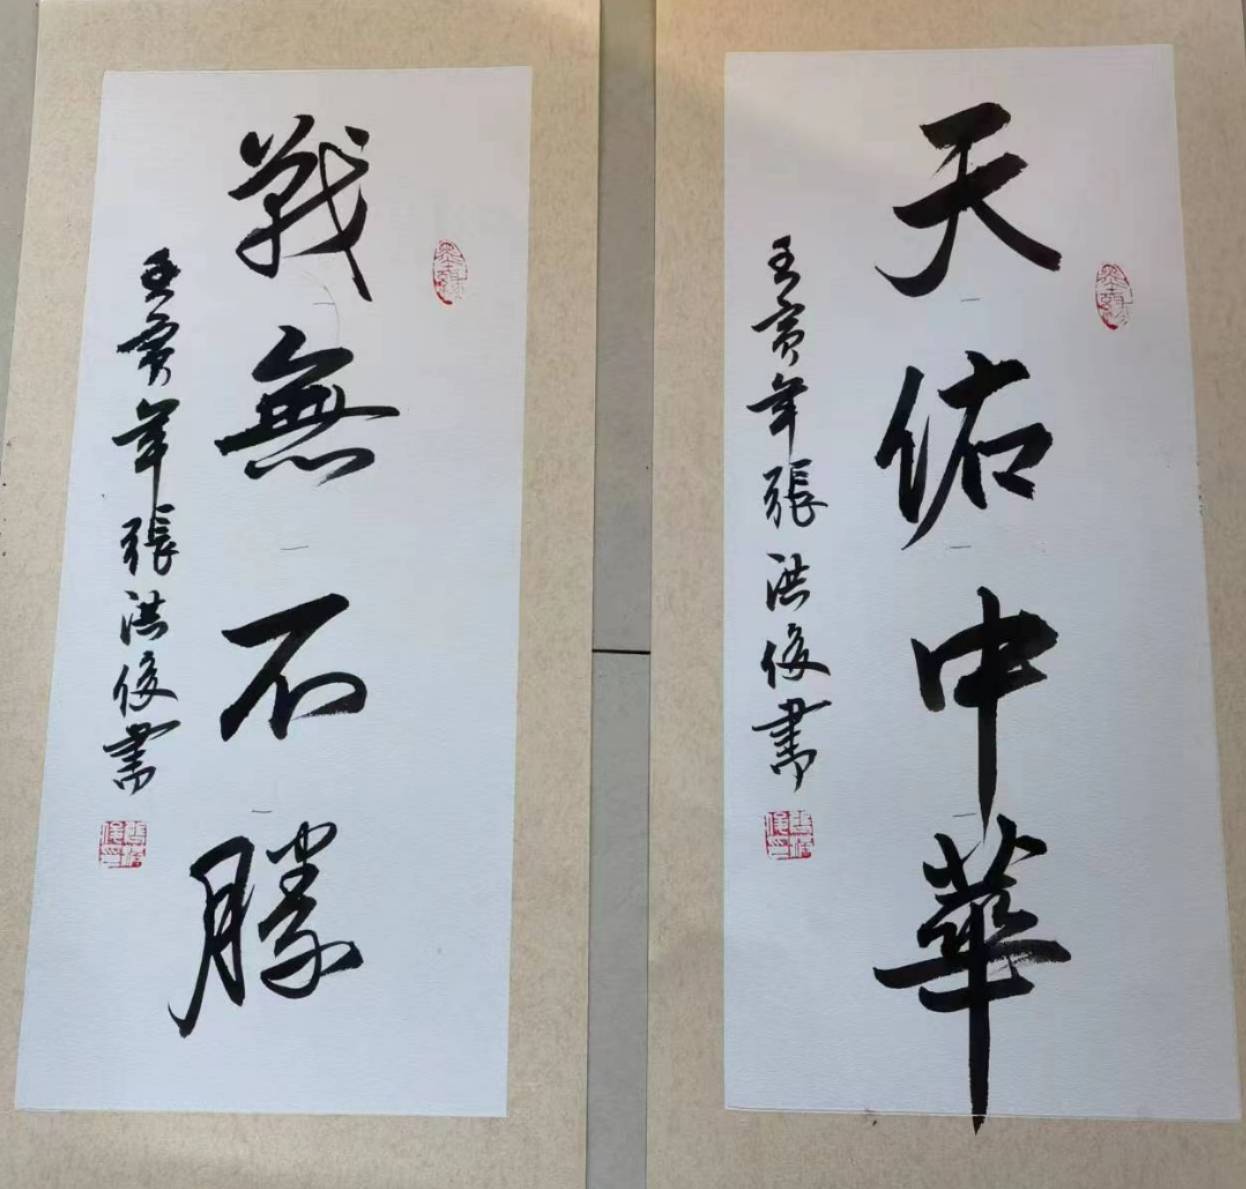 天佑中華
壬寅年張洪俊書
戰無不勝
壬寅年張洪俊書